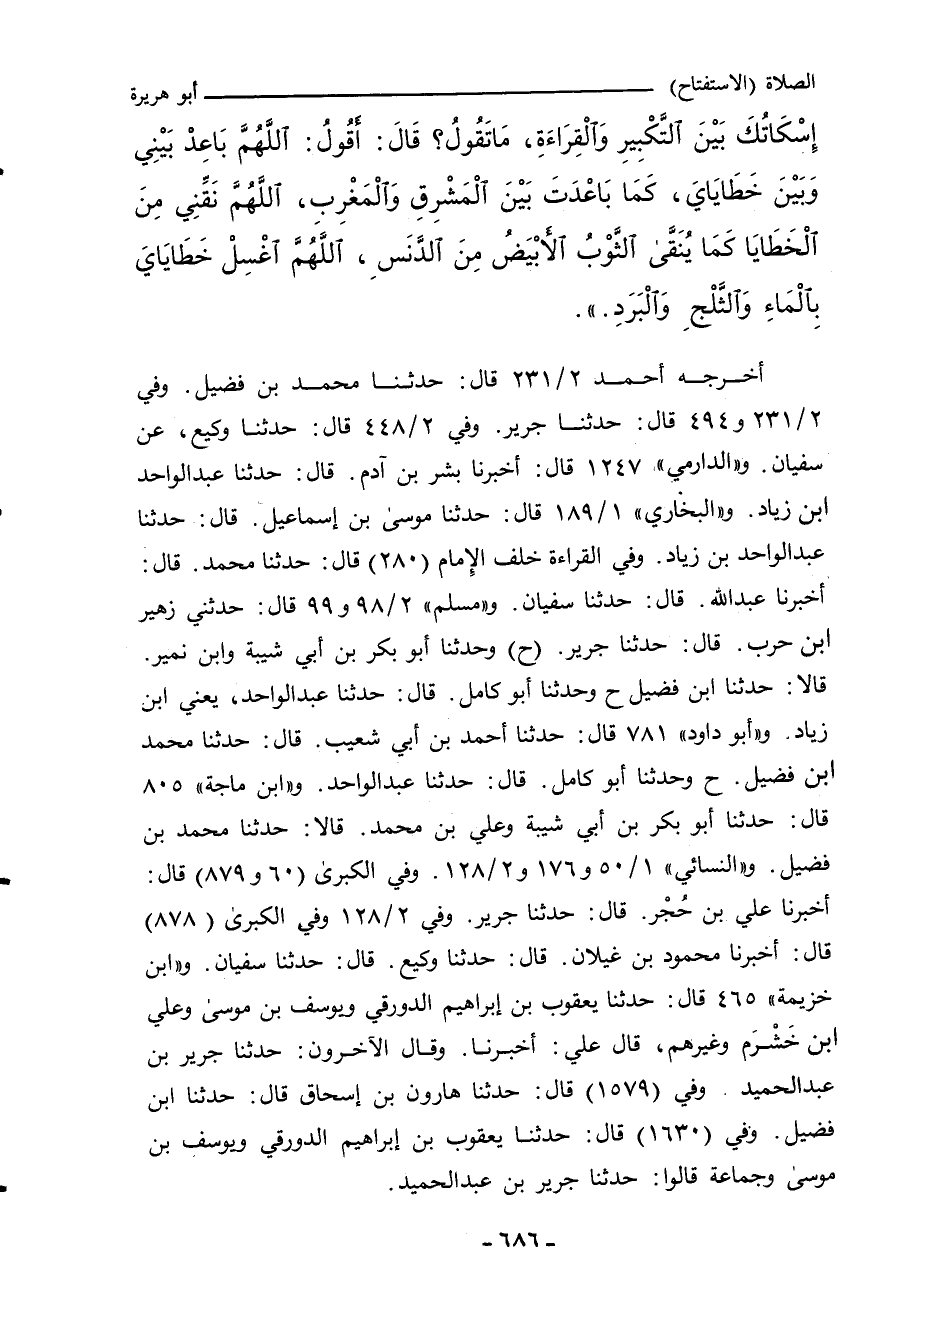 الصلاة (الاستفتاح) أبو هريرة
إِسْكَاتُكَ بَيْنَ ٱلتَّكْبِيرِ وَٱلْقِرَاءَةِ، مَاتَقُولُ؟ قَالَ: أَقُولُ: ٱللَّهُمَّ بَاعِدْ بَيْنِي
وَبَيْنَ خَطَايَايَ، كَمَا بَاعَدْتَ بَيْنَ ٱلْمَشْرِقِ وَٱلْمَغْرِبِ، ٱللَّهُمَّ نَقِّنِي مِنَ
ٱلْخَطَايَا كَمَا يُنَقَّىٰ ٱلثَّوْبُ ٱلْأَبْيَضُ مِنَ ٱلدَّنَسِ، ٱللَّهُمَّ ٱغْسِلْ خَطَايَايَ
بِٱلْمَاءِ وَٱلثَّلْجِ وَٱلْبَرَدِ.».
أخرجه أحمد ٢٣١/٢ قال: حدثنا محمد بن فضيل. وفي
٢٣١/٢ و٤٩٤ قال: حدثنا جرير. وفي ٤٤٨/٢ قال: حدثنا وكيع، عن
سفيان. و«الدارمي» ١٢٤٧ قال: أخبرنا بشر بن آدم. قال: حدثنا عبدالواحد
ابن زياد. و«البخاري» ١٨٩/١ قال: حدثنا موسىٰ بن إسماعيل. قال: حدثنا
عبدالواحد بن زياد. وفي القراءة خلف الإمام (٢٨٠) قال: حدثنا محمد. قال:
أخبرنا عبدالله. قال: حدثنا سفيان. و«مسلم» ٩٨/٢ و٩٩ قال: حدثني زهير
ابن حرب. قال: حدثنا جرير. (ح) وحدثنا أبو بكر بن أبي شيبة وابن نمير.
قالا: حدثنا ابن فضيل ح وحدثنا أبو كامل. قال: حدثنا عبدالواحد، يعني ابن
زياد. و«أبو داود» ٧٨١ قال: حدثنا أحمد بن أبي شعيب. قال: حدثنا محمد
ابن فضيل. ح وحدثنا أبو كامل. قال: حدثنا عبدالواحد. و«ابن ماجة» ٨٠٥
قال: حدثنا أبو بكر بن أبي شيبة وعلي بن محمد. قالا: حدثنا محمد بن
فضيل. و«النسائي» ٥٠/١ و١٧٦ و١٢٨/٢. وفي الكبرىٰ (٦٠ و٨٧٩) قال:
أخبرنا علي بن حُجْر. قال: حدثنا جرير. وفي ١٢٨/٢ وفي الكبرىٰ (٨٧٨)
قال: أخبرنا محمود بن غيلان. قال: حدثنا وكيع. قال: حدثنا سفيان. و«ابن
خزيمة» ٤٦٥ قال: حدثنا يعقوب بن إبراهيم الدورقي ويوسف بن موسىٰ وعلي
ابن خَشْرَم وغيرهم، قال علي: أخبرنا. وقال الآخرون: حدثنا جرير بن
عبدالحميد. وفي (١٥٧٩) قال: حدثنا هارون بن إسحاق قال: حدثنا ابن
فضيل. وفي (١٦٣٠) قال: حدثنا يعقوب بن إبراهيم الدورقي ويوسف بن
موسىٰ وجماعة قالوا: حدثنا جرير بن عبدالحميد.
- ٦٨٦ -